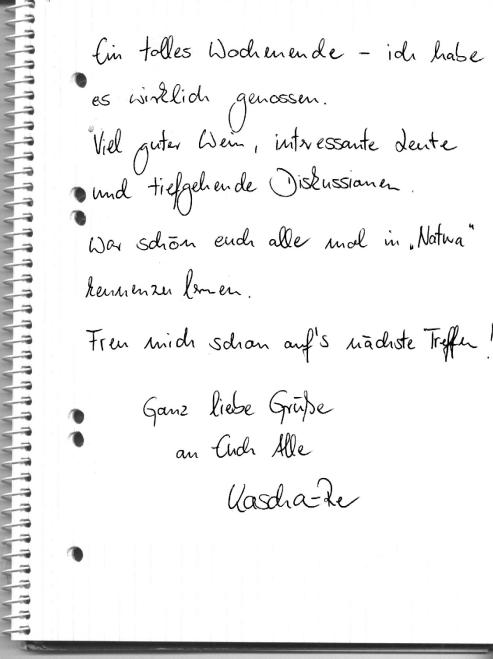 Ein tolles Wochenende – ich habe
es wirklich genossen.
Viel guter Wein, intressante Leute
und tiefgehende Diskussionen.
War schön euch alle mal in „Natura“
kennenzulernen.
Freu mich schon auf's nächste Treffen!
Ganz liebe Grüße
an Euch Alle
Kascha-Re